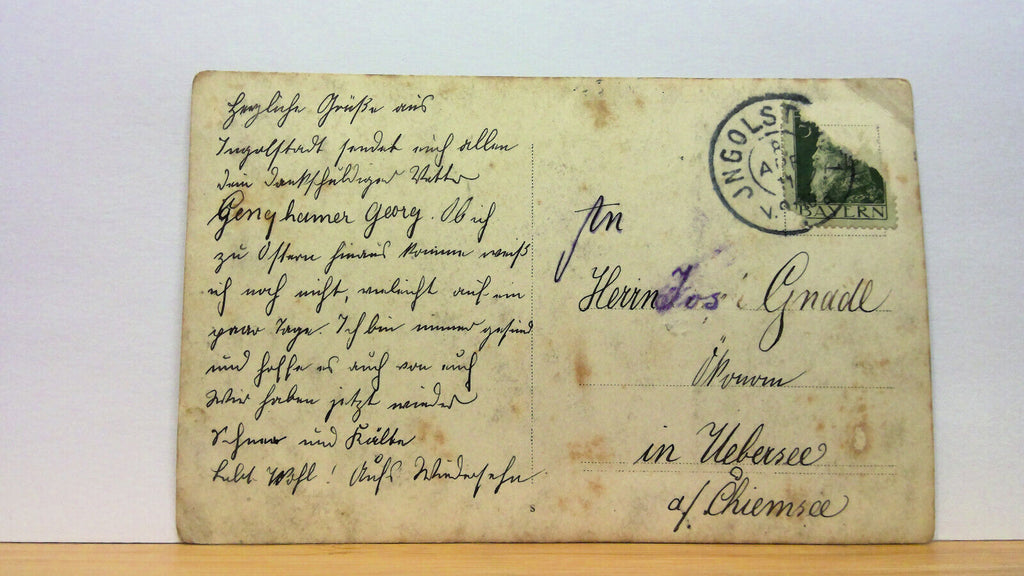 Herzliche Grüße aus
Ingolstadt sendet euch allen
Dein dankschuldiger Vetter
Georg. Ob ich
zu Ostern hinaus komme weiß
ich noch nicht, vieleicht auf ein
paar Tage. Ich bin immer gesund
und hoffe es auch von euch
Wir haben jetzt wieder
Schnee und Kälte
Lebt wohl! Aufs Wiedersehn
JNGOLST
8
APR
V.9
BAYERN
An
Herrn Jos Gnadl
Ökonom
in Uebersee
a/ Chiemsee
8